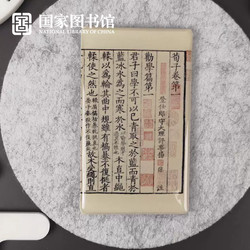 国家图书馆
NATIONAL LIBRARY OF CHINA
荀子卷第一
登仕郎守大理評事楊 注
勸學篇第一
君子曰學不可以已青取之於藍而青於
藍冰水為之而寒於水 木直中繩
輮以為輪其曲中規雖有槁暴不復挺者
輮使之然也 故木受繩則直